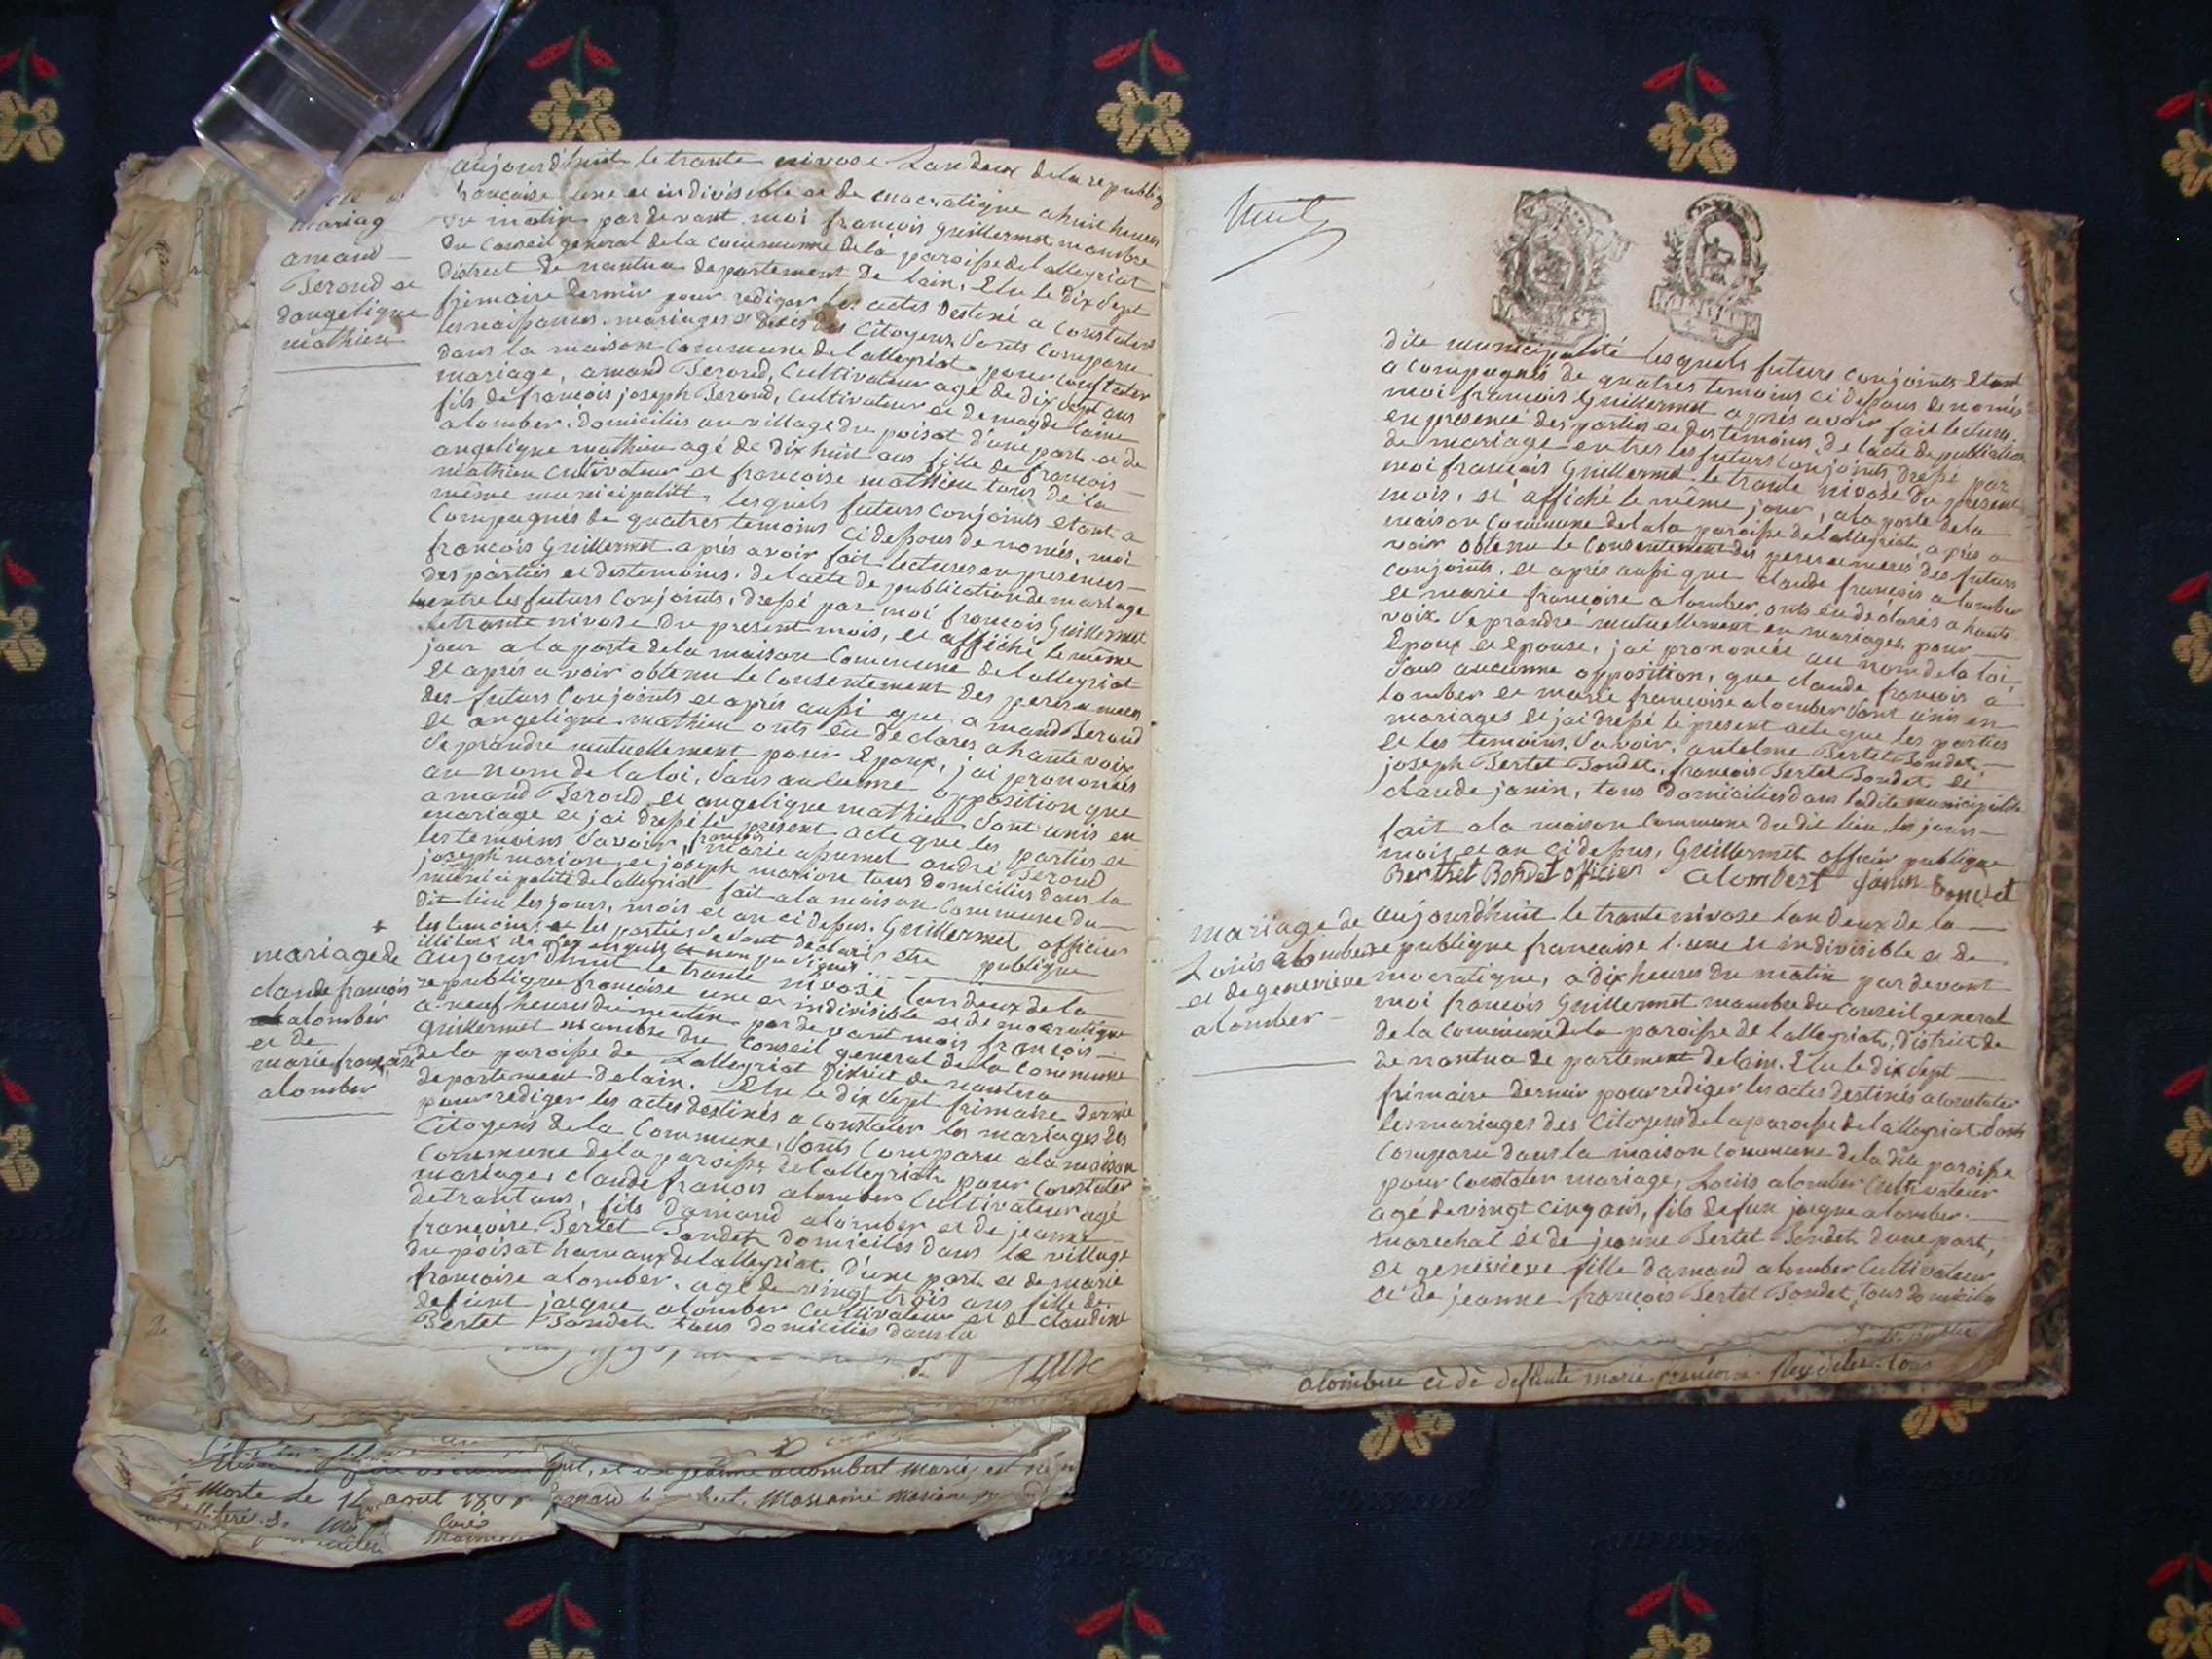 mariag
amand
Beroud et
dangelique
mathieu
aujourd'huit le trante nivose Lan deux de la republiq
francaise une et indivisible et de mocratique a huit heures
du matin par devant moi francois Guillermet mambre
du Conseil general de la Commune de la paroisse de lalleyriat
district de nantua departement de lain, Elu le dix Sept
frimaire dernier pour rediger les actes Destiné a Constater
les naissances, mariages et decès des Citoyens, Sonts Comparu
dans la maison Commune de lalleyriat pour Constater
mariage, amand Beroud, Cultivateur agé de dix Sept ans
fils de francois joseph Beroud, Cultivateur et de magdelaine
alomber, domiciliés au village du poisat d'une part et de
angelique mathieu agé de dix huit ans fille de francois
mathieu Cultivateur et francoise mathieu tous de la
même municipalité, lesquels futurs Conjoints Etant a
Compagnés de quatres temoins Ci dessous de només, moi
francois Guillermet après avoir fait lectures en presences
des parties et des temoins, de lacte de publication de mariage
entre les futurs Conjoints, dressé par moi francois Guillermet
le trante nivose du present mois, et affiché le même
jour a la porte de la maison Commune de lalleyriat
et après avoir obtenu le Consentement des peres et meres
des futurs Conjoints et après aussi que amand Beroud
et angelique mathieu onts eû declarés a haute voix
Se prandre mutuellement pour Epoux, j'ai prononcés
au nom de la loi, Sans aucunne opposition que
amand Beroud et angelique mathieu Sont unis en
mariage et jai dressé le present acte que les parties et
les temoins Savoir, francois marie assumel andré Beroud
joseph marion et joseph marion tous domiciliés dans la
municipalité de lalleyriat fait a la maison Commune du
dit lieu les jours, mois et an ci dessus. Guillermet officier
publique
mariage de
claude francois
alomber
et de
marie francoise
alomber
aujour dhuit le trante nivose lan deux de la
republique francaise une et indivisible et de mocratique
a neuf heures du matin par de vant moi francois
Guillermet mambre du Conseil general de la Commune
de la paroisse de Lalleyriat District de nantua
departement de lain. Elu le dix Sept frimaire dernie
pour rediger les actes destinés a Constater les mariages des
Citoyens de la Commune, Sonts Comparu a la maison
Commune de la paroisse de lalleyriat pour Constater
mariage, claude francois alomber Cultivateur agé
de trant ans, fils damand alomber et de jeanne
francoise Bertet Bondet domiciliés dans le village
du poisat hamaux de lalleyriat. D'une part et de marie
francoise alomber, agé de vingt trois ans fille de
defunt jacque alomber Cultivateur et de claudine
Bertet Bondet tous domiciliés dans la
dite municipalité lesquels futurs conjoints Etant
a Compagnés de quatres temoins ci dessous de només
moi francois Guillermet après avoir fait lecture
en presence des parties et des temoins, de lacte de publication
de mariage entres les futurs Conjoints, dressé par
moi francois Guillermet le trante nivose du present
mois, et affiché le même jour, a la porte de la
maison Commune de la paroisse de lalleyriat, après a
voir obtenu le Consentement des peres et meres des futurs
conjoints, et après aussi que claude francois alomber
et marie francoise alomber onts eu déclarés a haute
voix Se prandre mutuellement en mariages, pour
Epoux et Epouse, jai prononcés au nom de la loi,
Sans aucunne opposition, que claude francois a
lomber et marie francoise alomber Sont unis en
mariages et jai dressé le present acte que les parties
et les temoins, Savoir, antelme Bertet Bondet,
joseph Bertet Bondet, francois Bertet Bondet et
claude janin, tous Domiciliés dans ladite municipalité
fait a la maison Commune du dit lieu, les jours
mois et an ci dessus, Guillermet officier publique
Berthet Bondet officier alombert janin bondet
mariage de
Louis alomber
et de genevieve
alomber
aujourd'huit le trante nivose lan Deux de la
republique francaise l'une et indivisible et de
mocratique, a dix heures du matin par devant
moi francois Guillermet mambre du Conseil general
de la Commune de la paroisse de lalleyriat, District de
de nantua de partement de lain. Elu le dix Sept
frimaire dernier pour rediger les actes destinés a Constater
les mariages des Citoyens de la paroisse de lalleyriat Sont
Comparu dans la maison Commune de la dite paroisse
pour Constater mariage, Louis alomber Cultivateur
agé de vingt cinq ans, fils de feu jacque alomber
marechal et de jeanne Bertet Bondet dune part,
et genevieve fille damand alomber Cultivateur
et de jeanne francois Bertet Bondet, tous domicilié
alombert et de defunte marie francoise tous
et de jeanne alombert mariés est
Morte le 14 aout